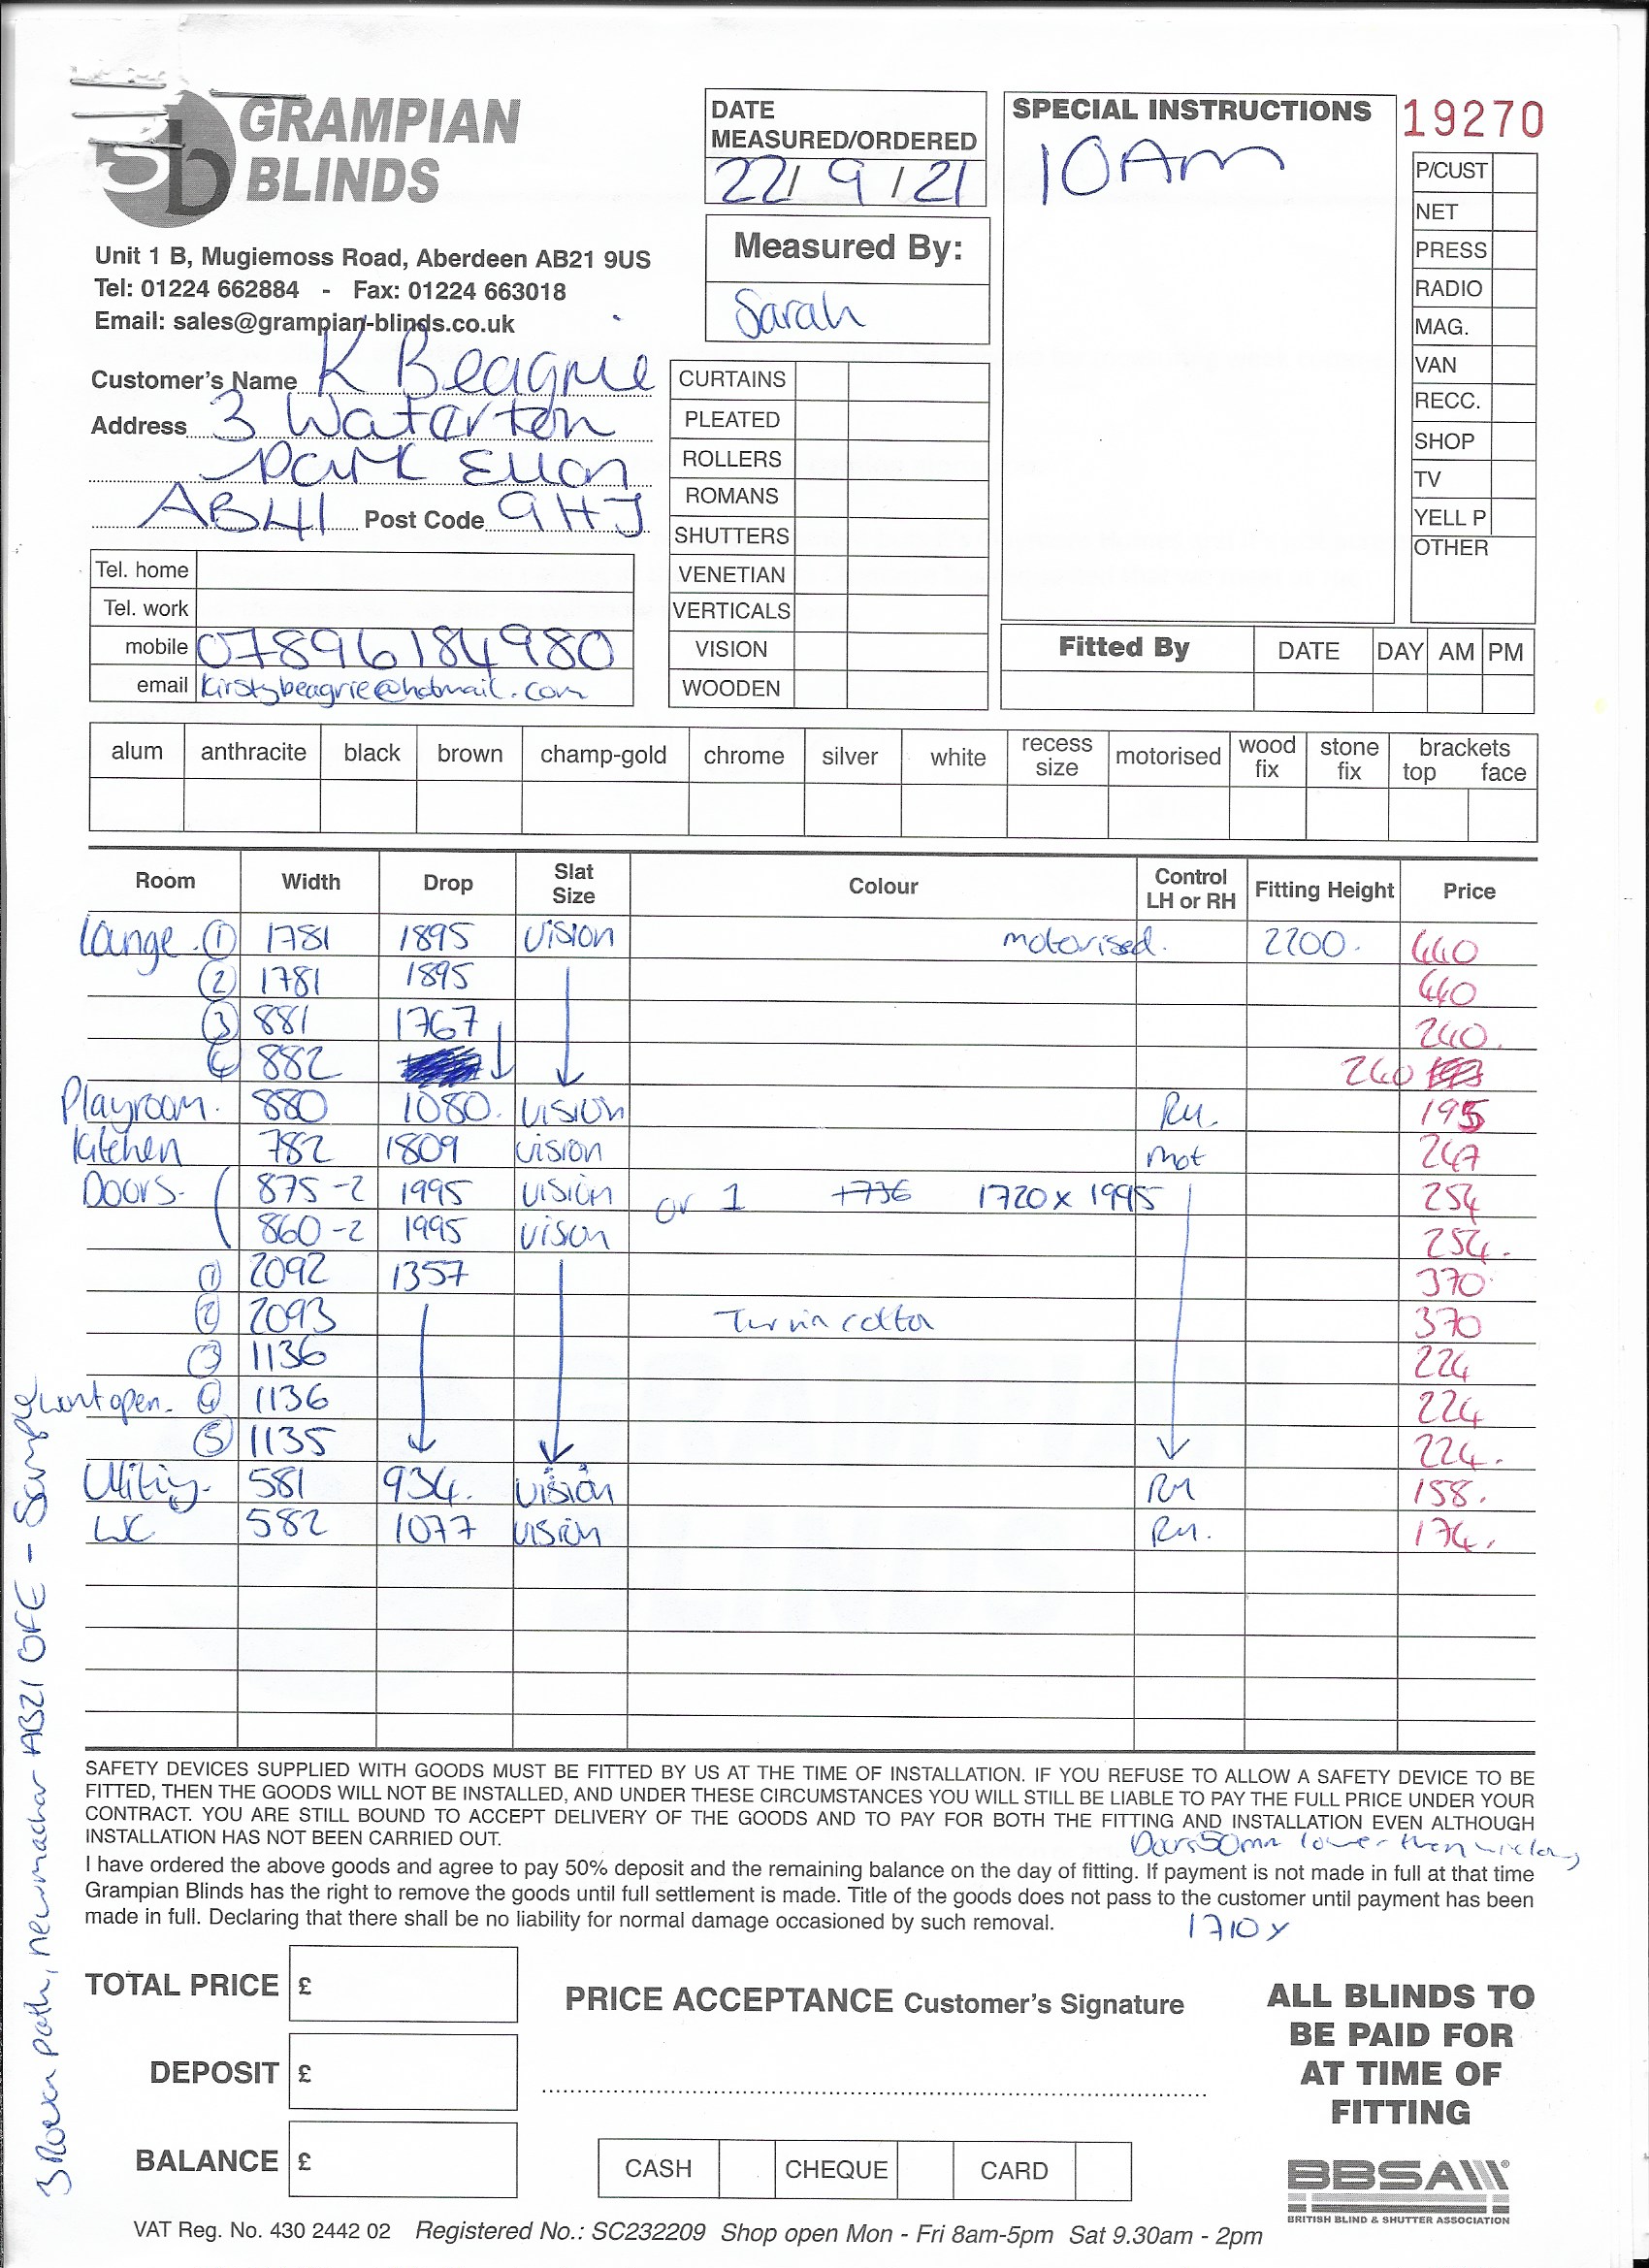 GRAMPIAN
BLINDS
Unit 1 B, Mugiemoss Road, Aberdeen AB21 9US
Tel: 01224 662884 - Fax: 01224 663018
Email: sales@grampian-blinds.co.uk
Customer's Name K Beagrie
Address 3 Waterton
Park Ellon
AB41 Post Code 9HJ
Tel. home
Tel. work
mobile 07896184980
email kirstybeagrie@hotmail.com
DATE
MEASURED/ORDERED
22/9/21
Measured By:
Sarah
CURTAINS
PLEATED
ROLLERS
ROMANS
SHUTTERS
VENETIAN
VERTICALS
VISION
WOODEN
SPECIAL INSTRUCTIONS
10AM
19270
P/CUST
NET
PRESS
RADIO
MAG.
VAN
RECC.
SHOP
TV
YELL P
OTHER
Fitted By DATE DAY AM PM
alum anthracite black brown champ-gold chrome silver white recess size motorised wood fix stone fix brackets top face
Room Width Drop Slat Size Colour Control LH or RH Fitting Height Price
Lounge ① 1781 1895 vision motorised. 2200. 440
② 1781 1895 440
③ 881 1767 240.
④ 882 240
Playroom. 880 1080. vision RH. 195
Kitchen 782 1809 vision mot 247
Doors. 875-2 1995 vision or 1 1736 1720 x 1995 254
860-2 1995 vison 254.
① 2092 1357 370
② 2093 370
③ 1136 224
wont open. ④ 1136 224
⑤ 1135 224.
Utility. 581 934. vision RH 158.
WC 582 1077 vision RH. 174.
SAFETY DEVICES SUPPLIED WITH GOODS MUST BE FITTED BY US AT THE TIME OF INSTALLATION. IF YOU REFUSE TO ALLOW A SAFETY DEVICE TO BE
FITTED, THEN THE GOODS WILL NOT BE INSTALLED, AND UNDER THESE CIRCUMSTANCES YOU WILL STILL BE LIABLE TO PAY THE FULL PRICE UNDER YOUR
CONTRACT. YOU ARE STILL BOUND TO ACCEPT DELIVERY OF THE GOODS AND TO PAY FOR BOTH THE FITTING AND INSTALLATION EVEN ALTHOUGH
INSTALLATION HAS NOT BEEN CARRIED OUT.
Doors 50mm lower then window
I have ordered the above goods and agree to pay 50% deposit and the remaining balance on the day of fitting. If payment is not made in full at that time
Grampian Blinds has the right to remove the goods until full settlement is made. Title of the goods does not pass to the customer until payment has been
made in full. Declaring that there shall be no liability for normal damage occasioned by such removal.
1710 x
TOTAL PRICE £
DEPOSIT £
BALANCE £
PRICE ACCEPTANCE Customer's Signature
CASH CHEQUE CARD
ALL BLINDS TO
BE PAID FOR
AT TIME OF
FITTING
BBSA
BRITISH BLIND & SHUTTER ASSOCIATION
VAT Reg. No. 430 2442 02 Registered No.: SC232209 Shop open Mon - Fri 8am-5pm Sat 9.30am - 2pm
3 path, newmachar AB21 0FE - Sample